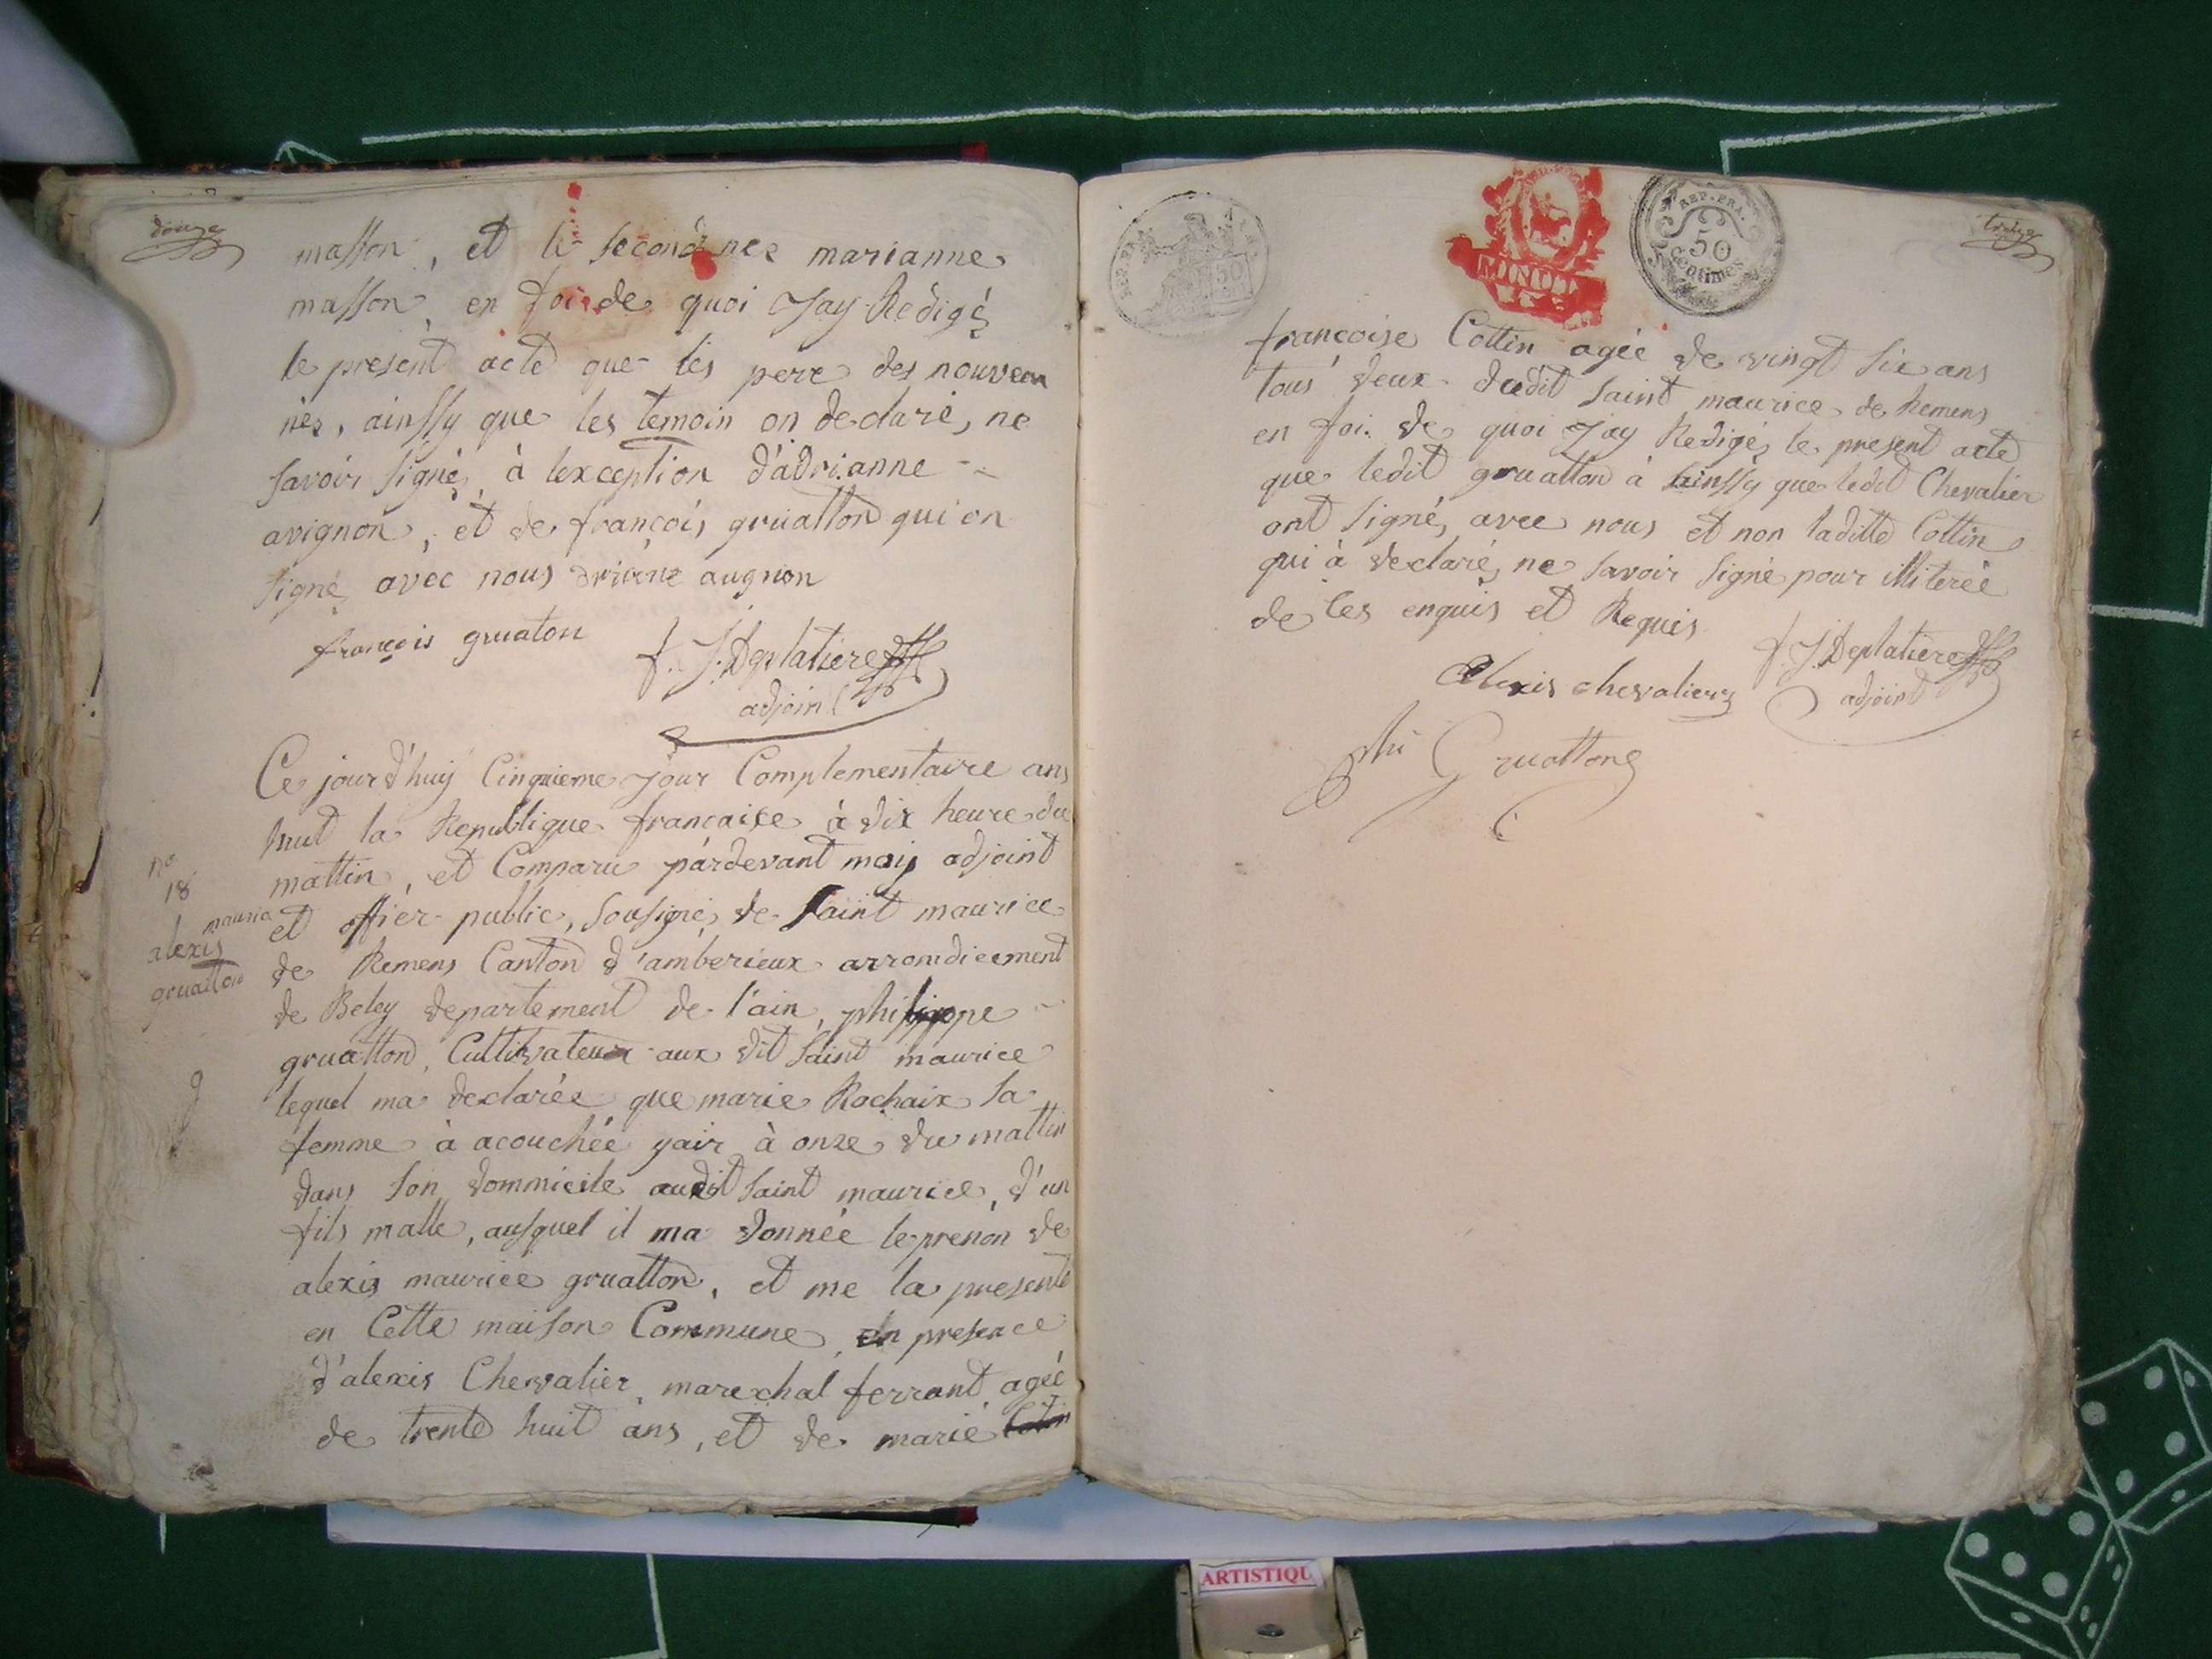 douze
masson, et le second nee marianne
masson, en foi de quoi Jay Redigé
le present acte que les pere des nouveau
nés, ainssy que les temoin on declaré, ne
savoir signé, à lexception d'adrianne
avignon, et de françois gruatton qui on
signé avec nous driene augnon
françois gruaton
f. J. Deplatiere
adjoint
Ce jourd'huy Cinquieme jour Complementaire ans
huit la Republique française à dix heure du
mattin, et Comparu pardevant moy adjoint
et offier public, sousigné, de Saint maurice
de Remens Canton d'amberieux arromdicement
de Beley departement de l'ain, philippe
gruatton, Cultivateur aux dit saint maurice
lequel ma declarée que marie Rochaix sa
femme à acouchée yair à onze du mattin
dans son dommicile audit saint maurice, d'un
fils malle, ausquel il ma donnée le prenon de
alexis maurice gruatton, et me la presenté
en Cette maison Commune, en presence
d'alexis Chevalier, marexhal ferrant, agée
de trente huit ans, et de marie
no
18
alexis
maurice
gruatton
treize
REP. FRA.
50
REP. FRA.
50
centimes
françoise Cottin agée de vingt six ans
tous deux dudit saint maurice de Remens
en foi de quoi Jay Redigé, le present acte
que ledit gruatton à ainssy que ledit Chevalier
ont signé, avec nous et non laditte Cottin
qui à declaré, ne savoir signé pour illiterée
de les enquis et Requis
f. J. Deplatiere
adjoint
Alexis chevalier
phi Gruatton
ARTISTIQU